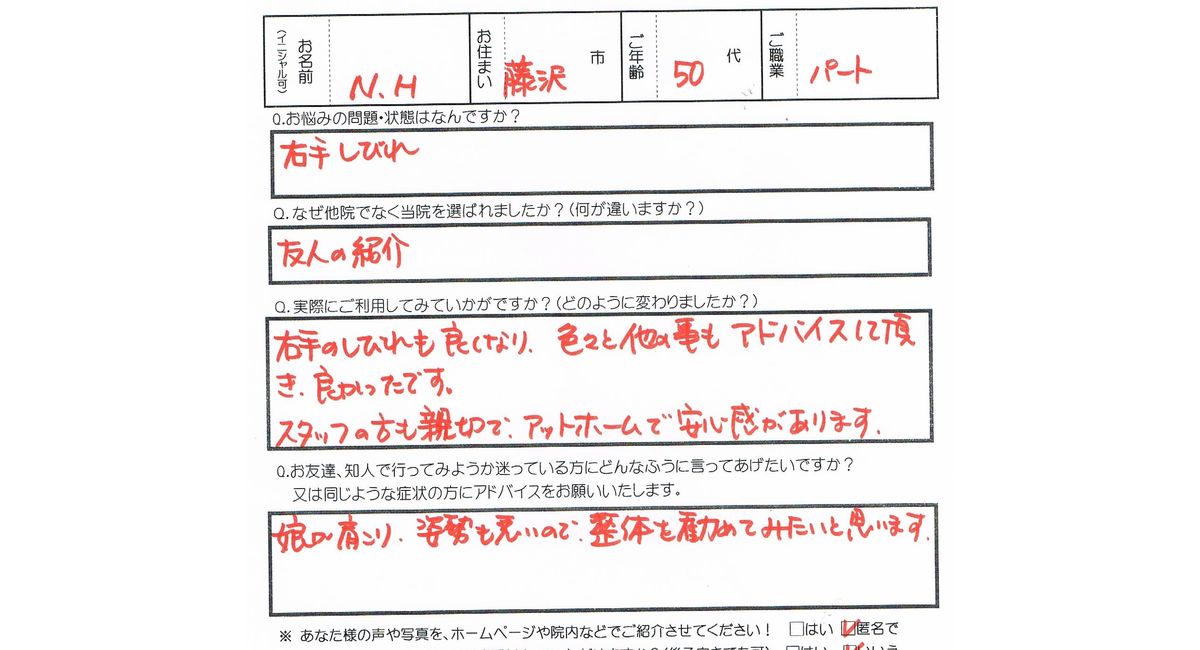 お名前 (イニシャル可) N.H お住まい 藤沢 市 ご年齢 50 代 ご職業 パート
Q.お悩みの問題・状態はなんですか？
右手しびれ
Q.なぜ他院でなく当院を選ばれましたか？(何が違いますか？)
友人の紹介
Q.実際にご利用してみていかがですか？(どのように変わりましたか？)
右手のしびれも良くなり、色々と他の事もアドバイスして頂
き、良かったです。
スタッフの方も親切で、アットホームで安心感があります。
Q.お友達、知人で行ってみようか迷っている方にどんなふうに言ってあげたいですか？
又は同じような症状の方にアドバイスをお願いいたします。
娘が肩こり、姿勢も悪いので、整体を勧めてみたいと思います。
※ あなた様の声や写真を、ホームページや院内などでご紹介させてください！ □はい ☑匿名で